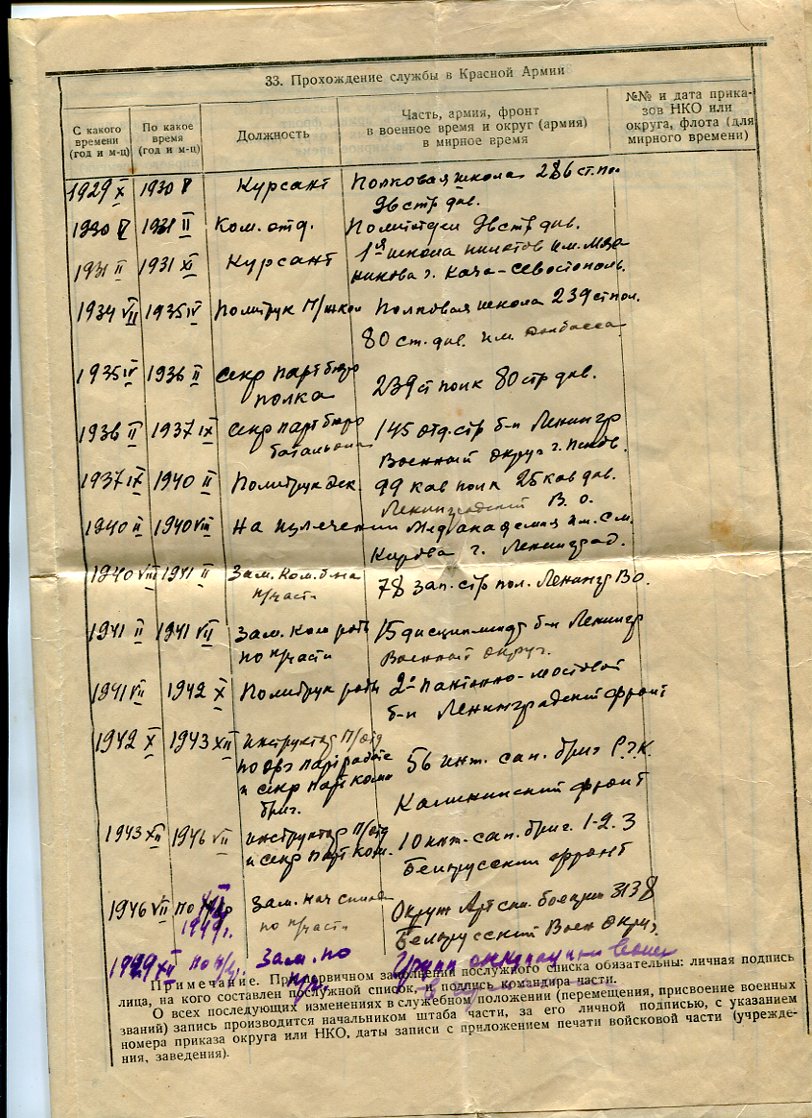 33. Прохождение службы в Красной Армии
С какого времени (год и м-ц)
По какое время (год и м-ц)
Должность
Часть, армия, фронт в военное время и округ (армия) в мирное время
№№ и дата приказов НКО или округа, флота (для мирного времени)
1929 X 1930 V Курсант Полковая школа 286 ст. по.
96 стр див.
1930 V 1931 II Ком. отд. Политотдел 96 стр див.
1931 II 1931 XI Курсант 1я школа пилотов им. Мяс
никова г. Кача-Севостополь.
1934 VII 1935 IV Политрук п/школ Полковая школа 239 ст пол.
80 ст. див. им. Донбасса
1935 IV 1936 II секр парт бюро 239 ст полк 80 стр див.
полка
1936 II 1937 IX секр парт бюро 145 отд. стр б-н Ленингр
батальона Военный округ г. Псков.
1937 IX 1940 II Политрук эск. 99 кав полк 25 кав див.
Ленинградский В. о.
1940 II 1940 VIII На излечении Мед академия им. С.М.
Кирова г. Ленинград.
1940 VIII 1941 II Зам. Ком. б-на 78 зап. стр пол. Ленингр Во.
п/части
1941 II 1941 VII Зам. Ком роты 15 дисциплинар б-н Ленингр
по п/части Военный округ.
1941 VII 1942 X Политрук роты 2й понтонно-мостовой
б-н Ленинградский фронт
1942 X 1943 XII инструктор П/отд
по орг парт работе 56 инж. сап. бриг Р.Г.К.
и секр парт коми
бриг. Калининский фронт
1943 XII 1946 VII инструктор П/отд 10 инж. сап. бриг. 1-2. 3
и секр парт ком. Белорусский фронт
1946 VII по 1949 г. Зам. нач склада Окруж Арт скл. боеприп 3138
по п/части Белорусский Воен Округ.
XII по н/вр. Зам. по
п/ч. Групп оккупацион войск
в
Примечание. При первичном заполнении послужного списка обязательны: личная подпись
лица, на кого составлен послужной список, и подпись командира части.
О всех последующих изменениях в служебном положении (перемещения, присвоение военных
званий) запись производится начальником штаба части, за его личной подписью, с указанием
номера приказа округа или НКО, даты записи с приложением печати войсковой части (учрежде-
ния, заведения).